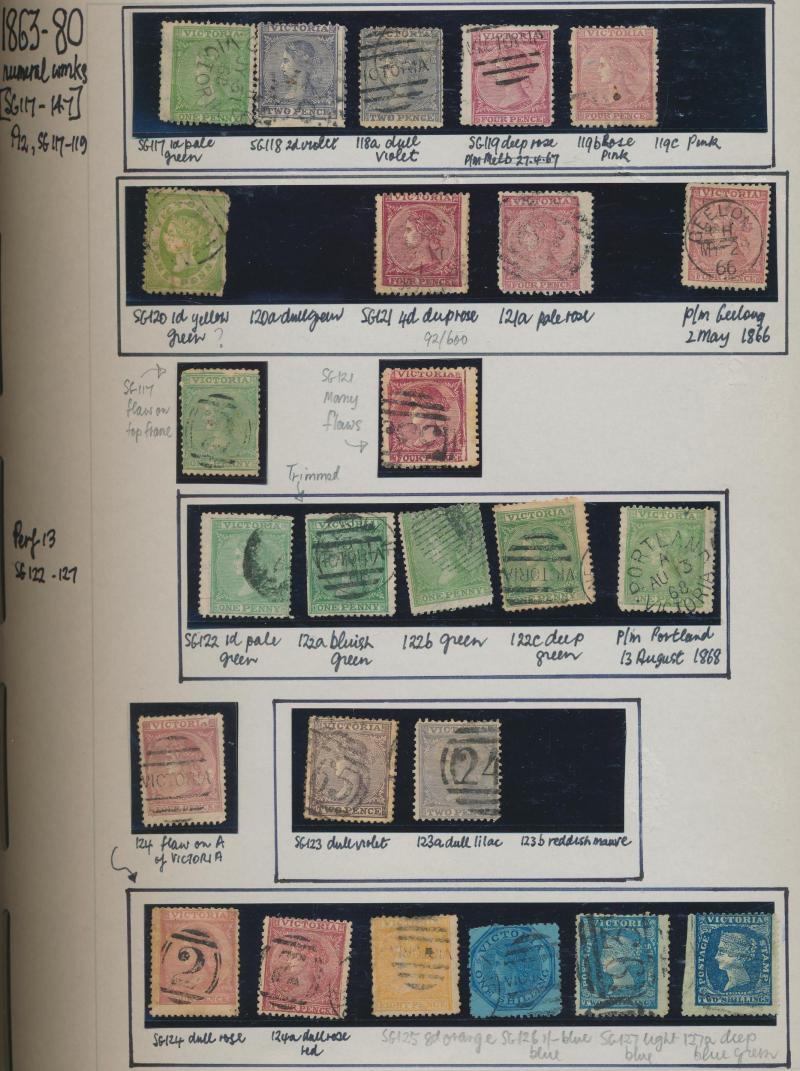 1863-80
numeral wmks
[SG117-147]
P12, SG117-119
VICTORIA
TWO PENCE
VICTORIA
TWO PENCE
VICTORIA
FOUR PENCE
VICTORIA
FOUR PENCE
SG117 1d pale green
SG118 2d violet
118a dull violet
SG119 deep rose
p/m Melb 27.4.67
119b Rose Pink
119c Pink
VICTORIA
FOUR PENCE
VICTORIA
FOUR PENCE
VICTORIA
GEELONG
66
FOUR PENCE
SG120 1d yellow green ?
120a dull green
SG121 4d deep rose
92/600
121a pale rose
p/m Geelong
2 May 1866
SG117
flaw on
top frame
VICTORIA
ONE PENNY
SG121
Many
flaws
VICTORIA
FOUR PENCE
Trimmed
Perf 13
SG122-127
VICTORIA
ONE PENNY
VICTORIA
ONE PENNY
ONE PENNY
VICTORIA
ONE PENNY
PORTLAND
A
AU 3
68
VICTORIA
SG122 1d pale green
122a bluish green
122b green
122c deep green
p/m Portland
13 August 1868
VICTORIA
VICTORIA
124 flaw on A
of VICTORIA
VICTORIA
65
TWO PENCE
VICTORIA
24
TWO PENCE
SG123 dull violet
123a dull lilac
123b reddish mauve
VICTORIA
2
VICTORIA
FOUR PENCE
VICTORIA
EIGHT PENCE
VICTORIA
ONE SHILLING
VICTORIA
POSTAGE
STAMP
TWO SHILLINGS
VICTORIA
POSTAGE
STAMP
TWO SHILLINGS
SG124 dull rose
124a dull rose red
SG125 8d orange
SG126 1/- blue blue
SG127 light blue
127a deep blue green